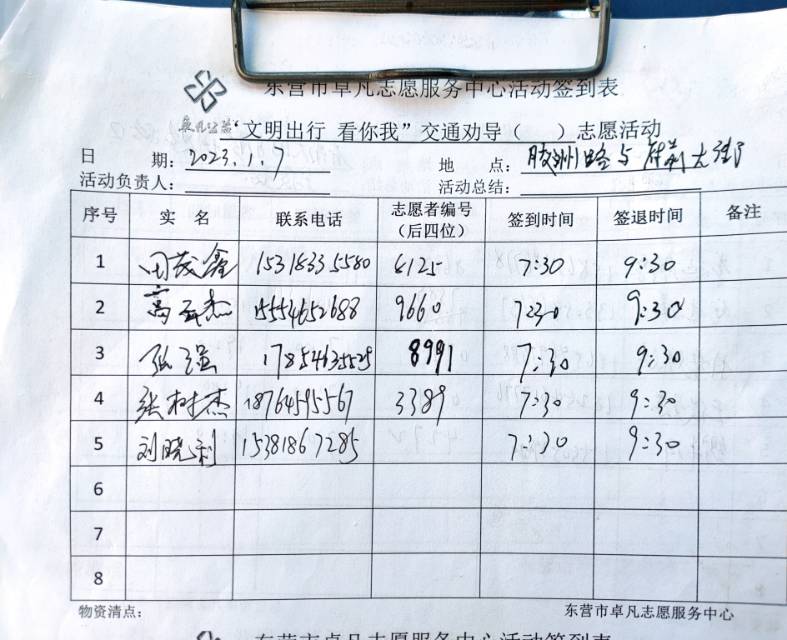 东营市卓凡志愿服务中心活动签到表
卓凡公益
“文明出行 看你我”交通劝导（ ）志愿活动
日 期：2023.1.7 地 点：胶州路与府前大街
活动负责人： 活动总结：
序号 实 名 联系电话 志愿者编号（后四位） 签到时间 签退时间 备注
1 周茂鑫 15318335580 6125 7:30 9:30
2 高孟杰 15554652688 9660 7:30 9:30
3 张强 17854635525 8991 7:30 9:30
4 张树杰 18764595567 3389 7:30 9:30
5 刘晓利 15381867285 7:30 9:30
6
7
8
物资清点： 东营市卓凡志愿服务中心
东营市卓凡志愿服务中心活动签到表